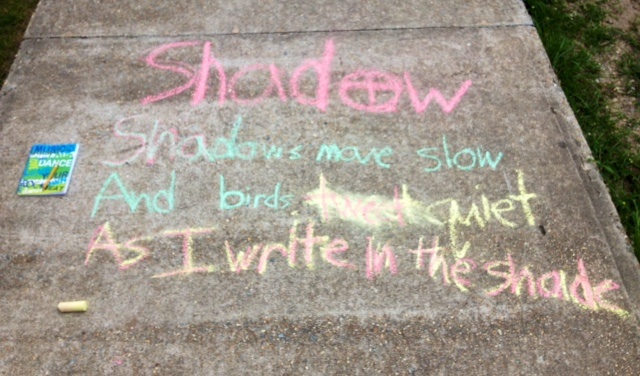 Shadow
Shadows move slow
And birds tweet quiet
As I write in the shade
DANCE